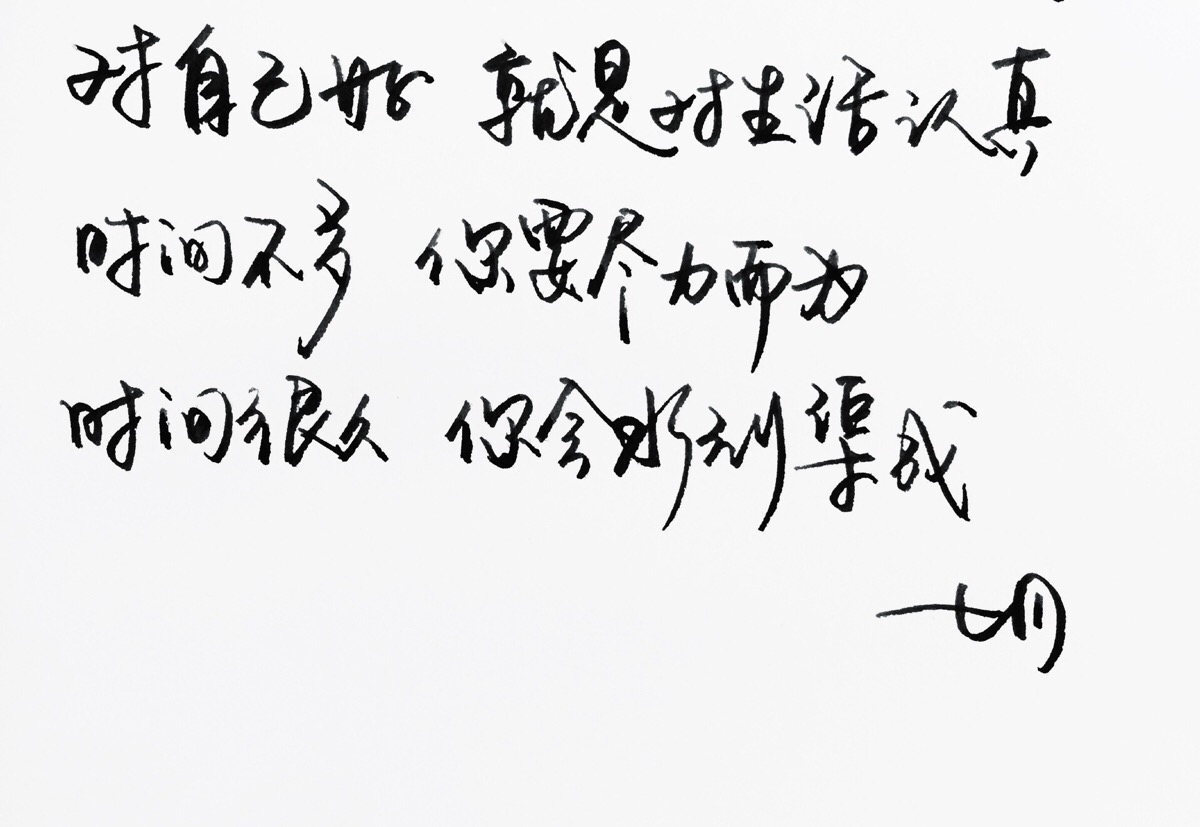 对自己好 就是对生活认真
时间不多 你要尽力而为
时间很久 你会水到渠成